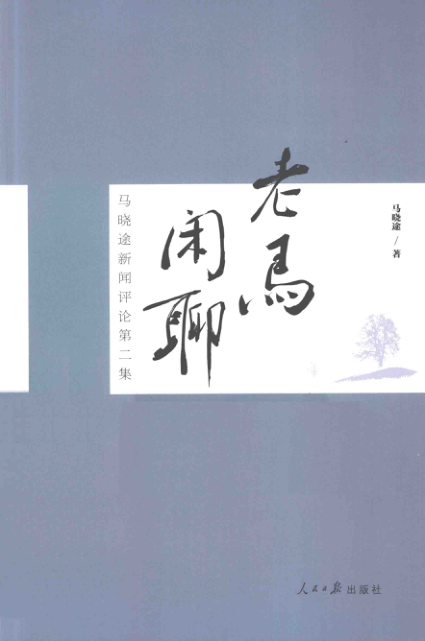 老马
闲聊
马晓途/著
马晓途新闻评论第二集
人民日报出版社